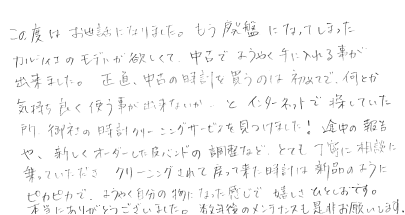 この度は お世話になりました。もう廃盤になってしまった
カルティエのモデルが欲しくて、中古でようやく手に入れる事が
出来ました。正直、中古の時計を買うのは初めてで、何とか
気持ち良く使う事が出来ないか…と インターネットで探していた
所 御社の時計クリーニングサービスを見つけました！途中の報告
や、新しくオーダーした皮バンドの調整など、とても丁寧に相談に
乗っていただき クリーニングされて戻って来た時計は新品のように
ピカピカで、ようやく自分の物になった感じで 嬉しさひとしおです。
本当にありがとうございました。数年後のメンテナンスも是非お願いします。